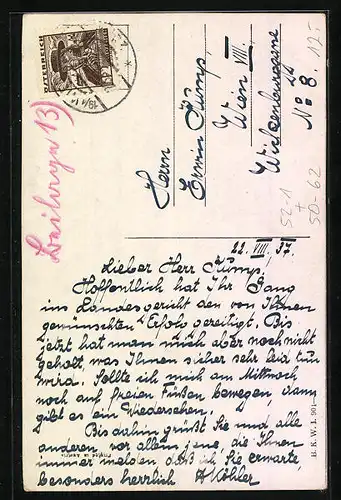 ÖSTERREICH
Herrn
Erwin Kümp,
Wien VIII.
Wickenburggasse
No 8.
12.-
52-1
+
50-62
22. VIII. 37.
Lieber Herr Kümp!
Hoffentlich hat Ihr Gang
ins Landesgericht den von Ihnen
gewünschten Erfolg gezeitigt. Bis
jetzt hat man mich aber noch nicht
geholt, was Ihnen sicher sehr leid tun
wird. Sollte ich mich am Mittwoch
noch auf freien Füßen bewegen, dann
gibt es ein Wiedersehen.
Bis dahin grüßt Sie und alle
anderen, vor allem jene, die Ihnen
immer melden daß ich sie erwarte,
besonders herzlich A Köhler
B. K. W. I. 901